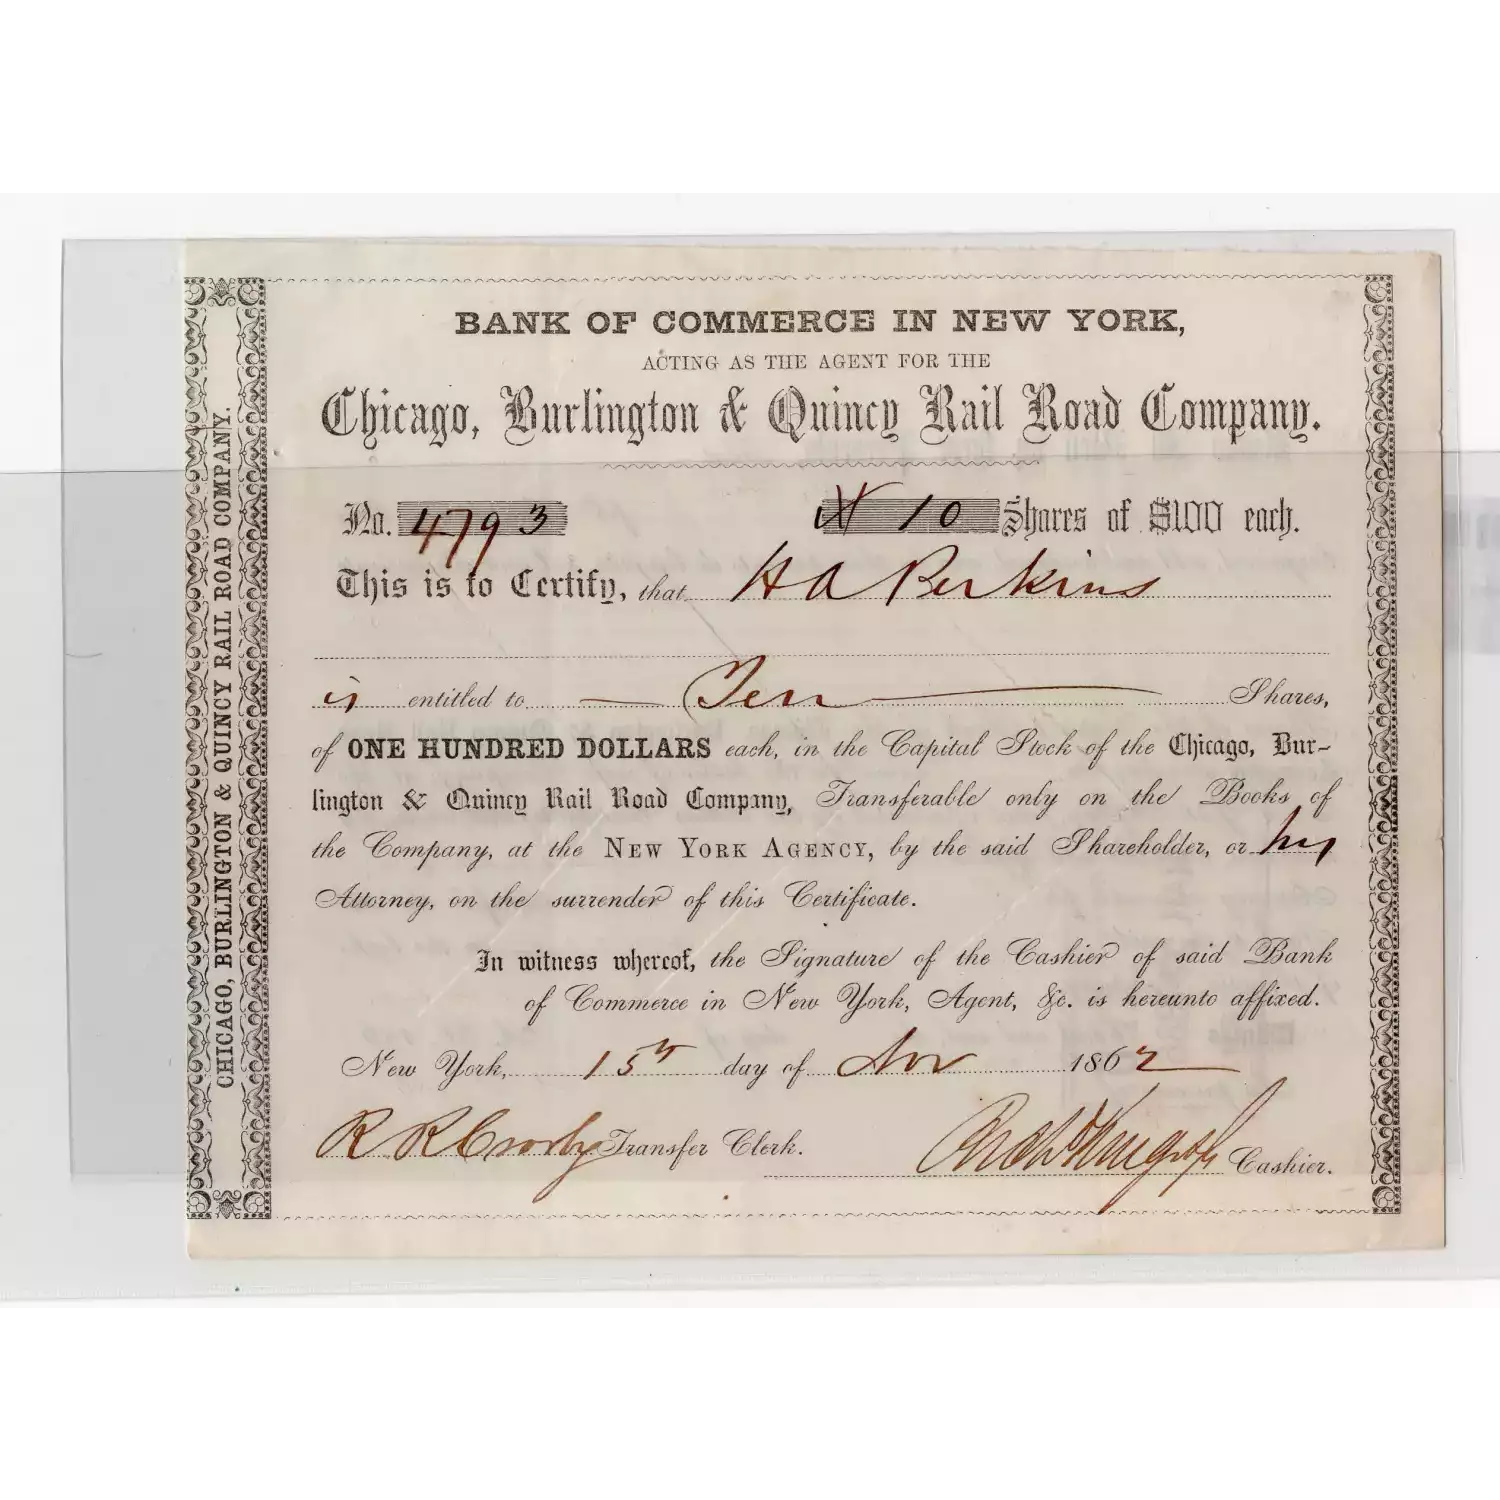 BANK OF COMMERCE IN NEW YORK,
ACTING AS THE AGENT FOR THE
Chicago, Burlington & Quincy Rail Road Company.
No. 4793 10 Shares of $100 each.
This is to Certify, that H A Perkins
is entitled to Ten Shares,
of ONE HUNDRED DOLLARS each, in the Capital Stock of the Chicago, Bur-
lington & Quincy Rail Road Company, Transferable only on the Books of
the Company, at the NEW YORK AGENCY, by the said Shareholder, or his
Attorney, on the surrender of this Certificate.
In witness whereof, the Signature of the Cashier of said Bank
of Commerce in New York, Agent, &c. is hereunto affixed.
New York, 15th day of Nov 1862
R R Crosby Transfer Clerk.
Cashier.
CHICAGO, BURLINGTON & QUINCY RAIL ROAD COMPANY.